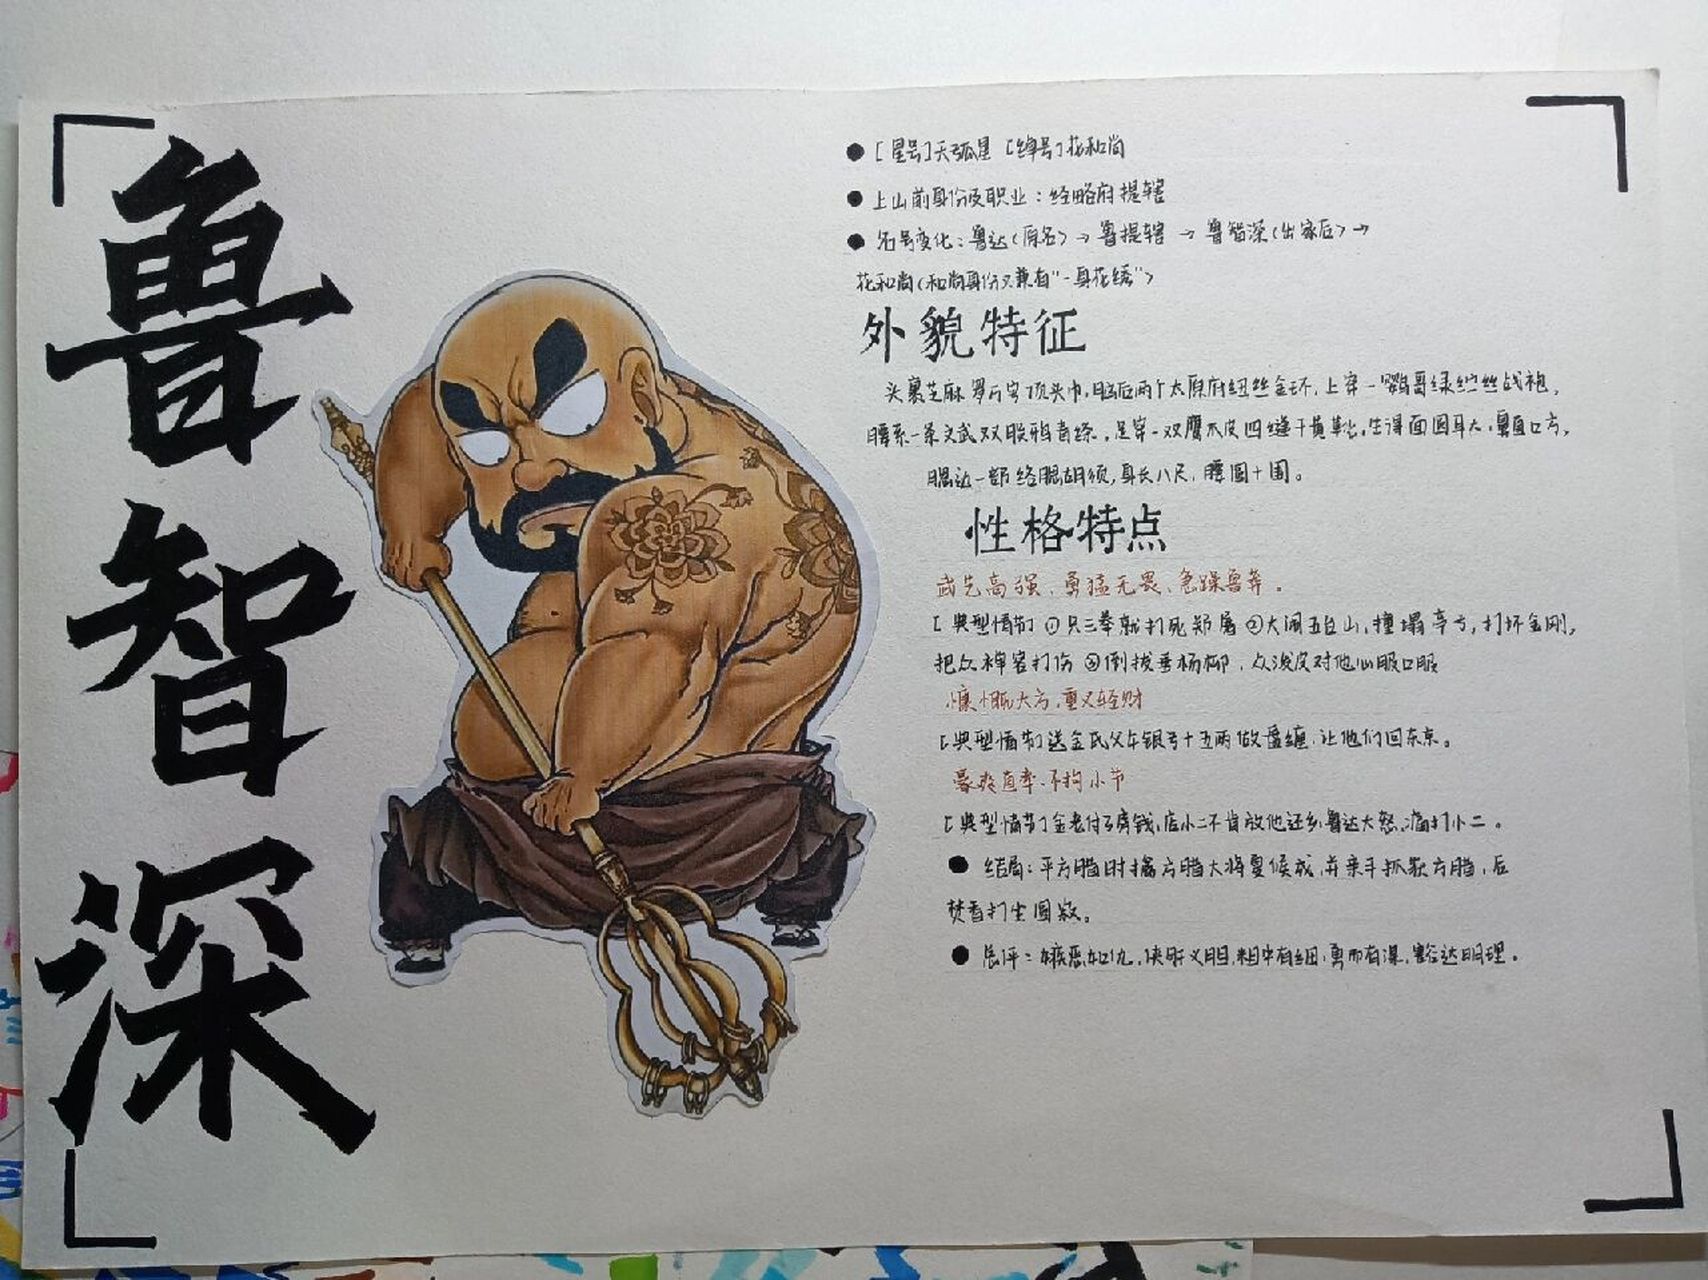 鲁智深
●[星号]天孤星 [绰号]花和尚
●上山前身份及职业：经略府提辖
●名号变化：鲁达(原名)→鲁提辖→鲁智深(出家后)→
花和尚(和尚身份又兼有"一身花绣")
外貌特征
头裹芝麻罗万字顶头巾,脑后两个太原府纽丝金环,上穿一领鹦哥绿纻丝战袍,
腰系一条文武双股鸦青绦,足穿一双鹰爪皮四缝干黄靴,生得面圆耳大,鼻直口方,
腮边一部络腮胡须,身长八尺,腰围十围。
性格特点
武艺高强、勇猛无畏、急躁鲁莽。
[典型情节]①只三拳就打死郑屠②大闹五台山,撞塌亭子,打坏金刚,
把众禅客打伤③倒拔垂杨柳,众泼皮对他心服口服
慷慨大方,重义轻财
[典型情节]送金氏父女银子十五两做盘缠,让他们回东京。
豪爽直率、不拘小节
[典型情节]金老付了房钱,店小二不肯放他还乡,鲁达大怒,痛打小二。
●结局：平方腊时擒方腊大将夏侯成,并亲手抓获方腊,后
焚香打坐圆寂。
●总评：嫉恶如仇,侠肝义胆,粗中有细,勇而有谋,豁达明理。